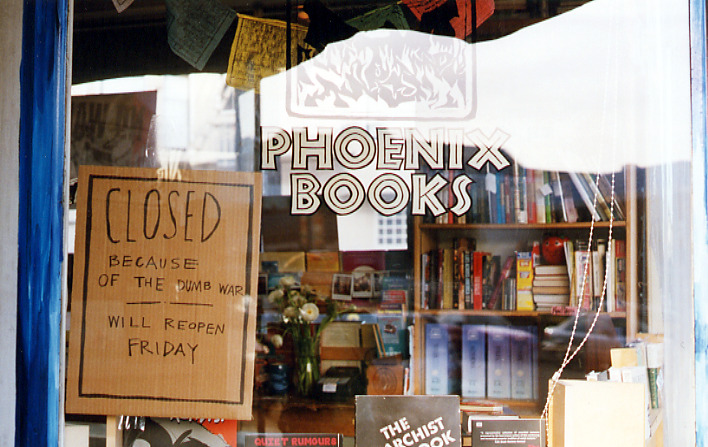 PHOENIX
BOOKS
CLOSED
BECAUSE
OF THE DUMB WAR
WILL REOPEN
FRIDAY
THE
QUIET RUMOURS